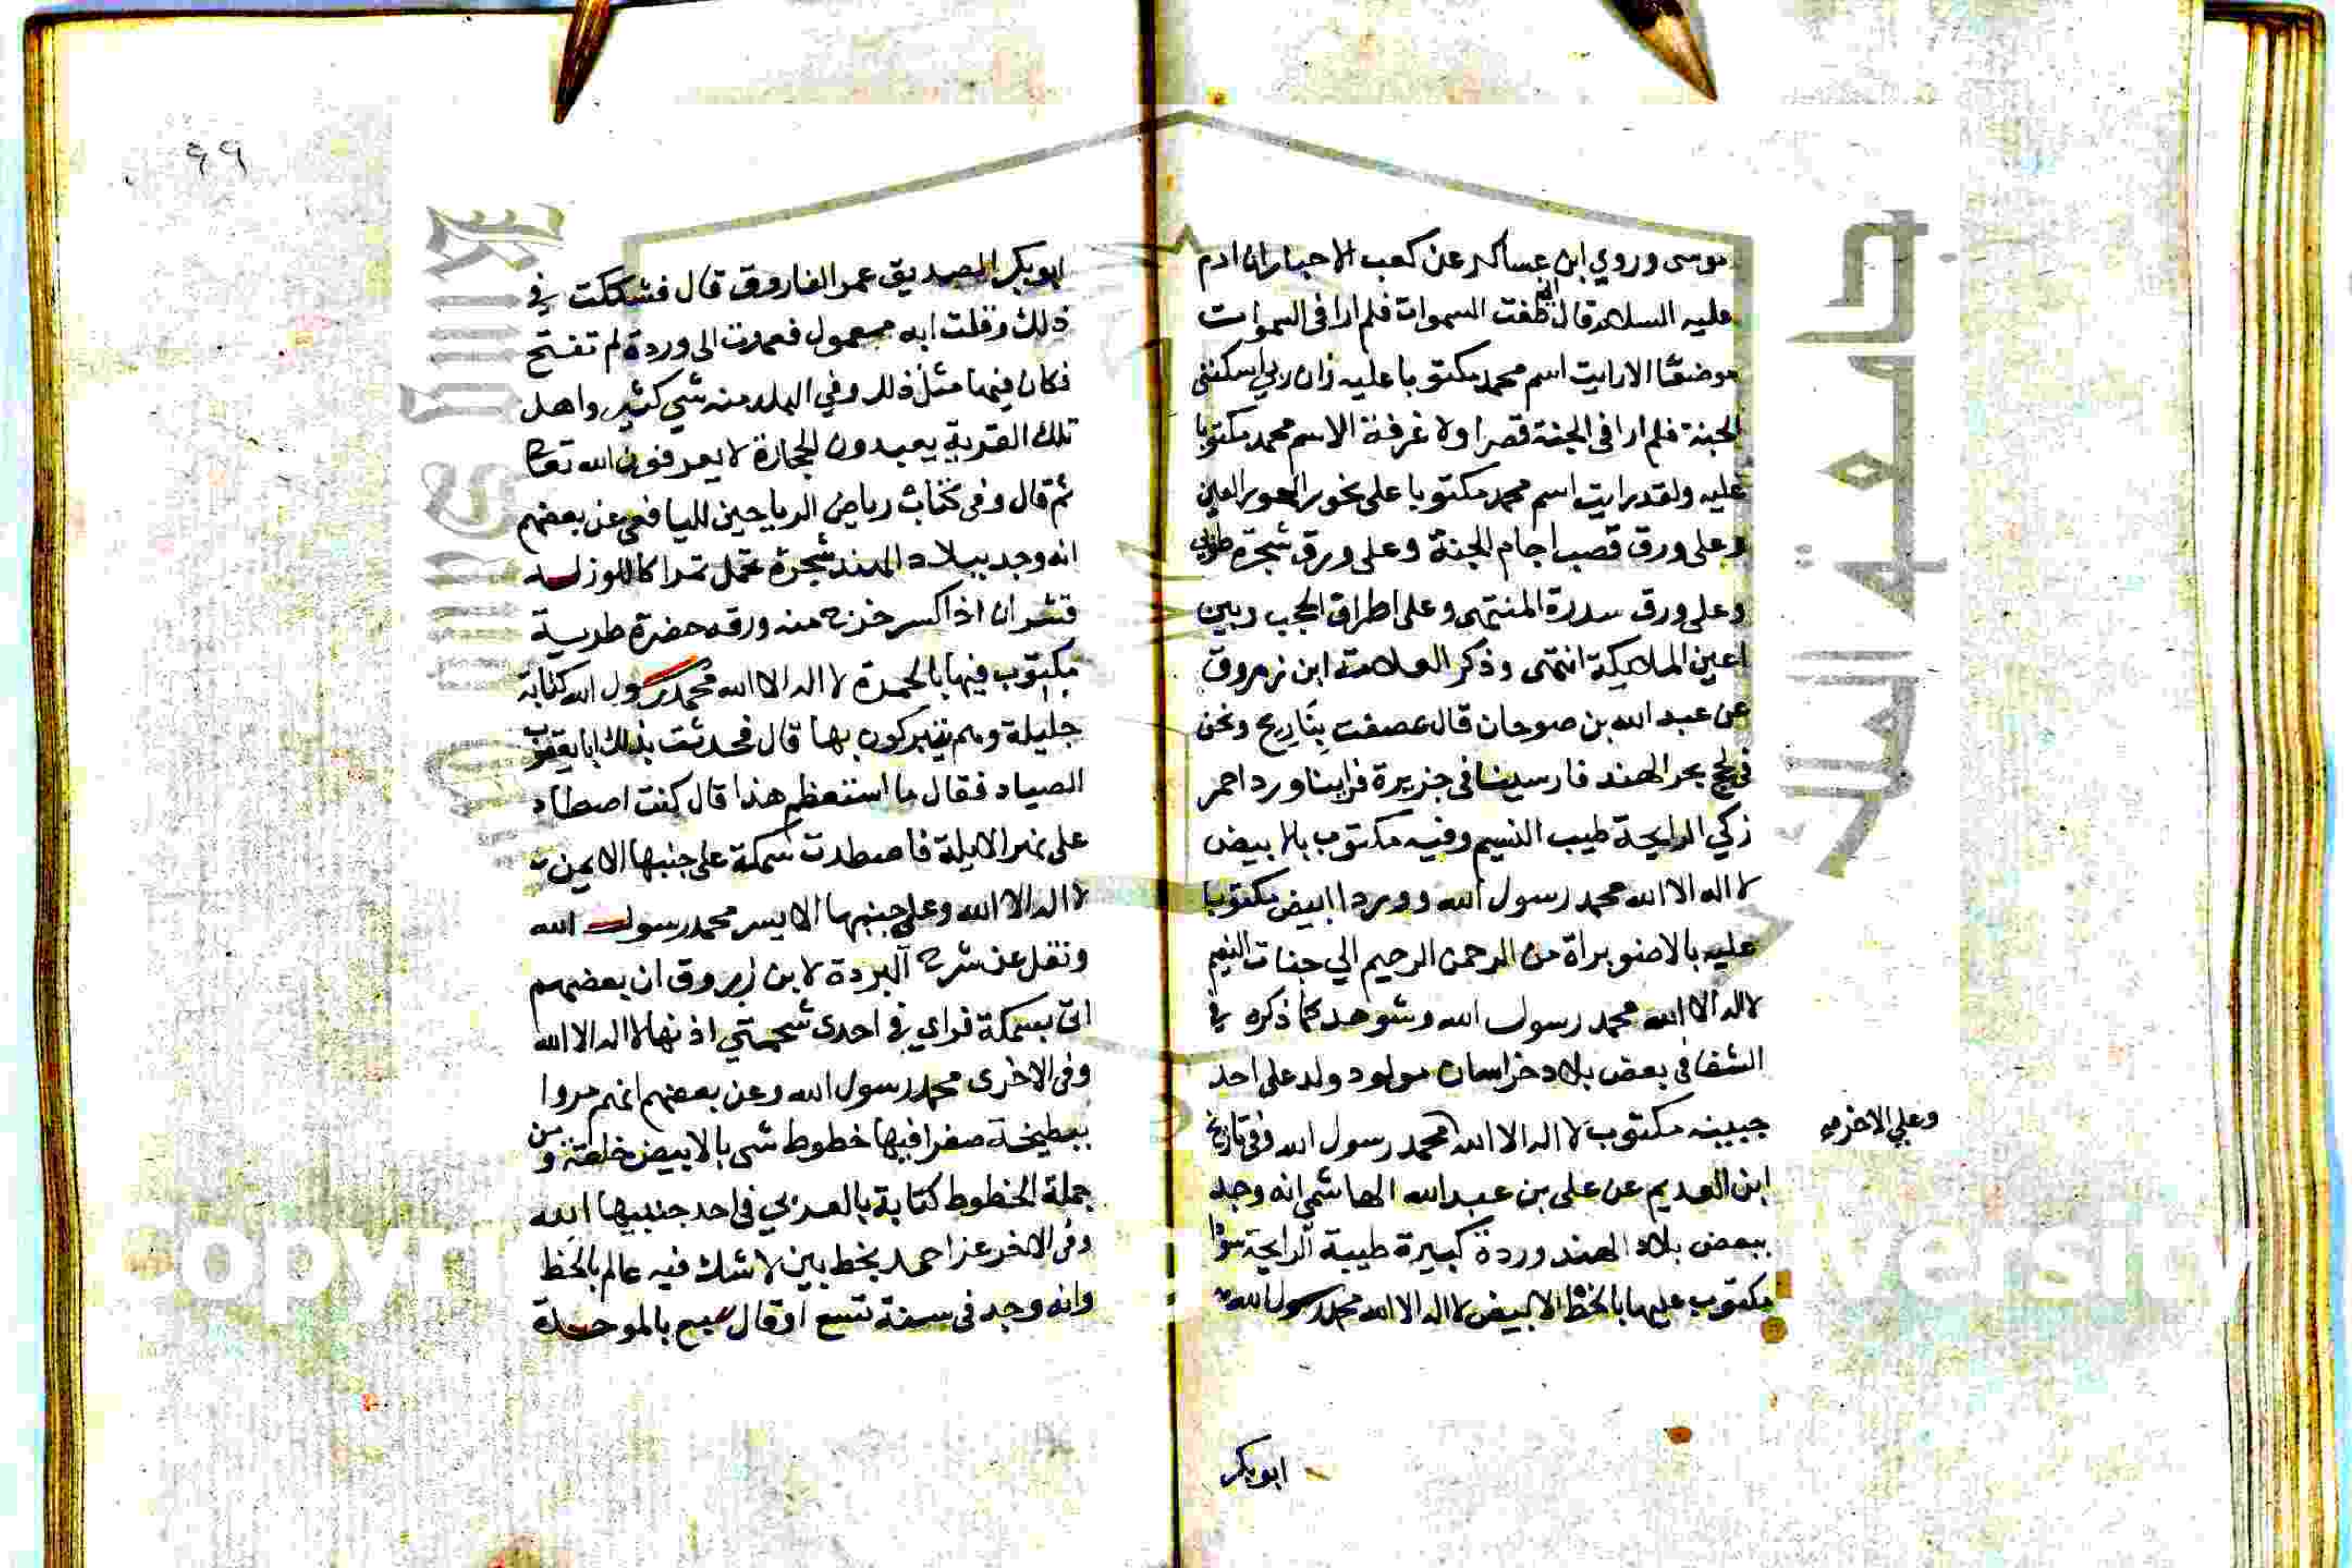 موسى وروي ابن عساكر عن كعب الاحبار ان ادم
عليه السلام قال طفت السموات فلم ارا في السموات
موضعا الا رايت اسم محمد مكتوبا عليه وان ربي اسكنني
الجنة فلم ارا في الجنة قصرا ولا غرفة الا سم محمد مكتوبا
عليه ولقد رايت اسم محمد مكتوبا على نحور الحور العين
وعلى ورق قصب اجام الجنة وعلى ورق شجرة طوبى
وعلى ورق سدرة المنتهى وعلى اطراف الحجب وبين
اعين الملايكة انتهى وذكر العلامة ابن مرزوق
عن عبد الله بن صوحان قال عصفت بنا ريح ونحن
في لجج بحر الهند فارسينا في جزيرة فراينا ورد احمر
زكي الرايحة طيب النسيم وفيه مكتوب بالابيض
لا اله الا الله محمد رسول الله ووردا ابيض مكتوبا
عليه بالاصفر براة من الرحمن الرحيم الي جنات النعيم
لا اله الا الله محمد رسول الله وشوهد كما ذكره في
الشفا في بعض بلاد خراسان مولود ولد على احد
جبينه مكتوب لا اله الا الله محمد رسول الله وفي تاريخ
وعلي الاخر
ابن العديم عن علي بن عبد الله الهاشمي انه وجد
ببعض بلاد الهند وردة كبيرة طيبة الرايحة سودا
مكتوب عليها بالخط الابيض لا اله الا الله محمد رسول الله
ابوبكر
٩٩
ابوبكر الصديق عمر الفاروق قال فشككت في
ذلك وقلت انه معمول فعمدت الى وردة لم تفتح
فكان فيها مثل ذلك وفي البلد منه شي كثير واهل
تلك القرية يعبدون الحجارة لا يعرفون الله تعالى
ثم قال وفي كتاب رياض الرياحين لليافعي عن بعضهم
انه وجد ببلاد الهند شجرة تحمل ثمرا كاللوز له
قشران اذا كسر خرج منه ورقه خضرة طرية
مكتوب فيها بالحمرة لا اله الا الله محمد رسول الله كتابة
جليلة وهم يتبركون بها قال فحدثت بذلك ابا يعقوب
الصياد فقال ما استعظم هذا قال كنت اصطاد
على نهر الايلة فاصطدت سمكة على جنبها الايمن
لا اله الا الله وعلى جنبها الايسر محمد رسول الله
ونقل عن شرح البردة لابن زبروق ان بعضهم
اتى بسمكة فراي في احدى شحمتي اذنها لا اله الا الله
وفي الاخرى محمد رسول الله وعن بعضهم انهم مروا
ببطيخة صفرا فيها خطوط شى بالابيض خلقة ومن
جملة الخطوط كتابة بالعربي في احد جنبيها الله
وفي الاخر عز احمد بخط بين لا شك فيه عالم بالخط
وانه وجد في سنة تسع او قال سبع بالموحدة